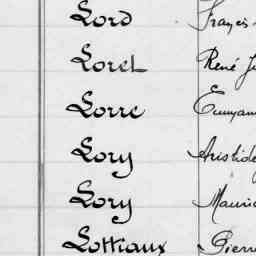 Lord Françis
Lorel René J
Lorre
Lory Aristide
Lory Mauric
Lottiaux Pierr